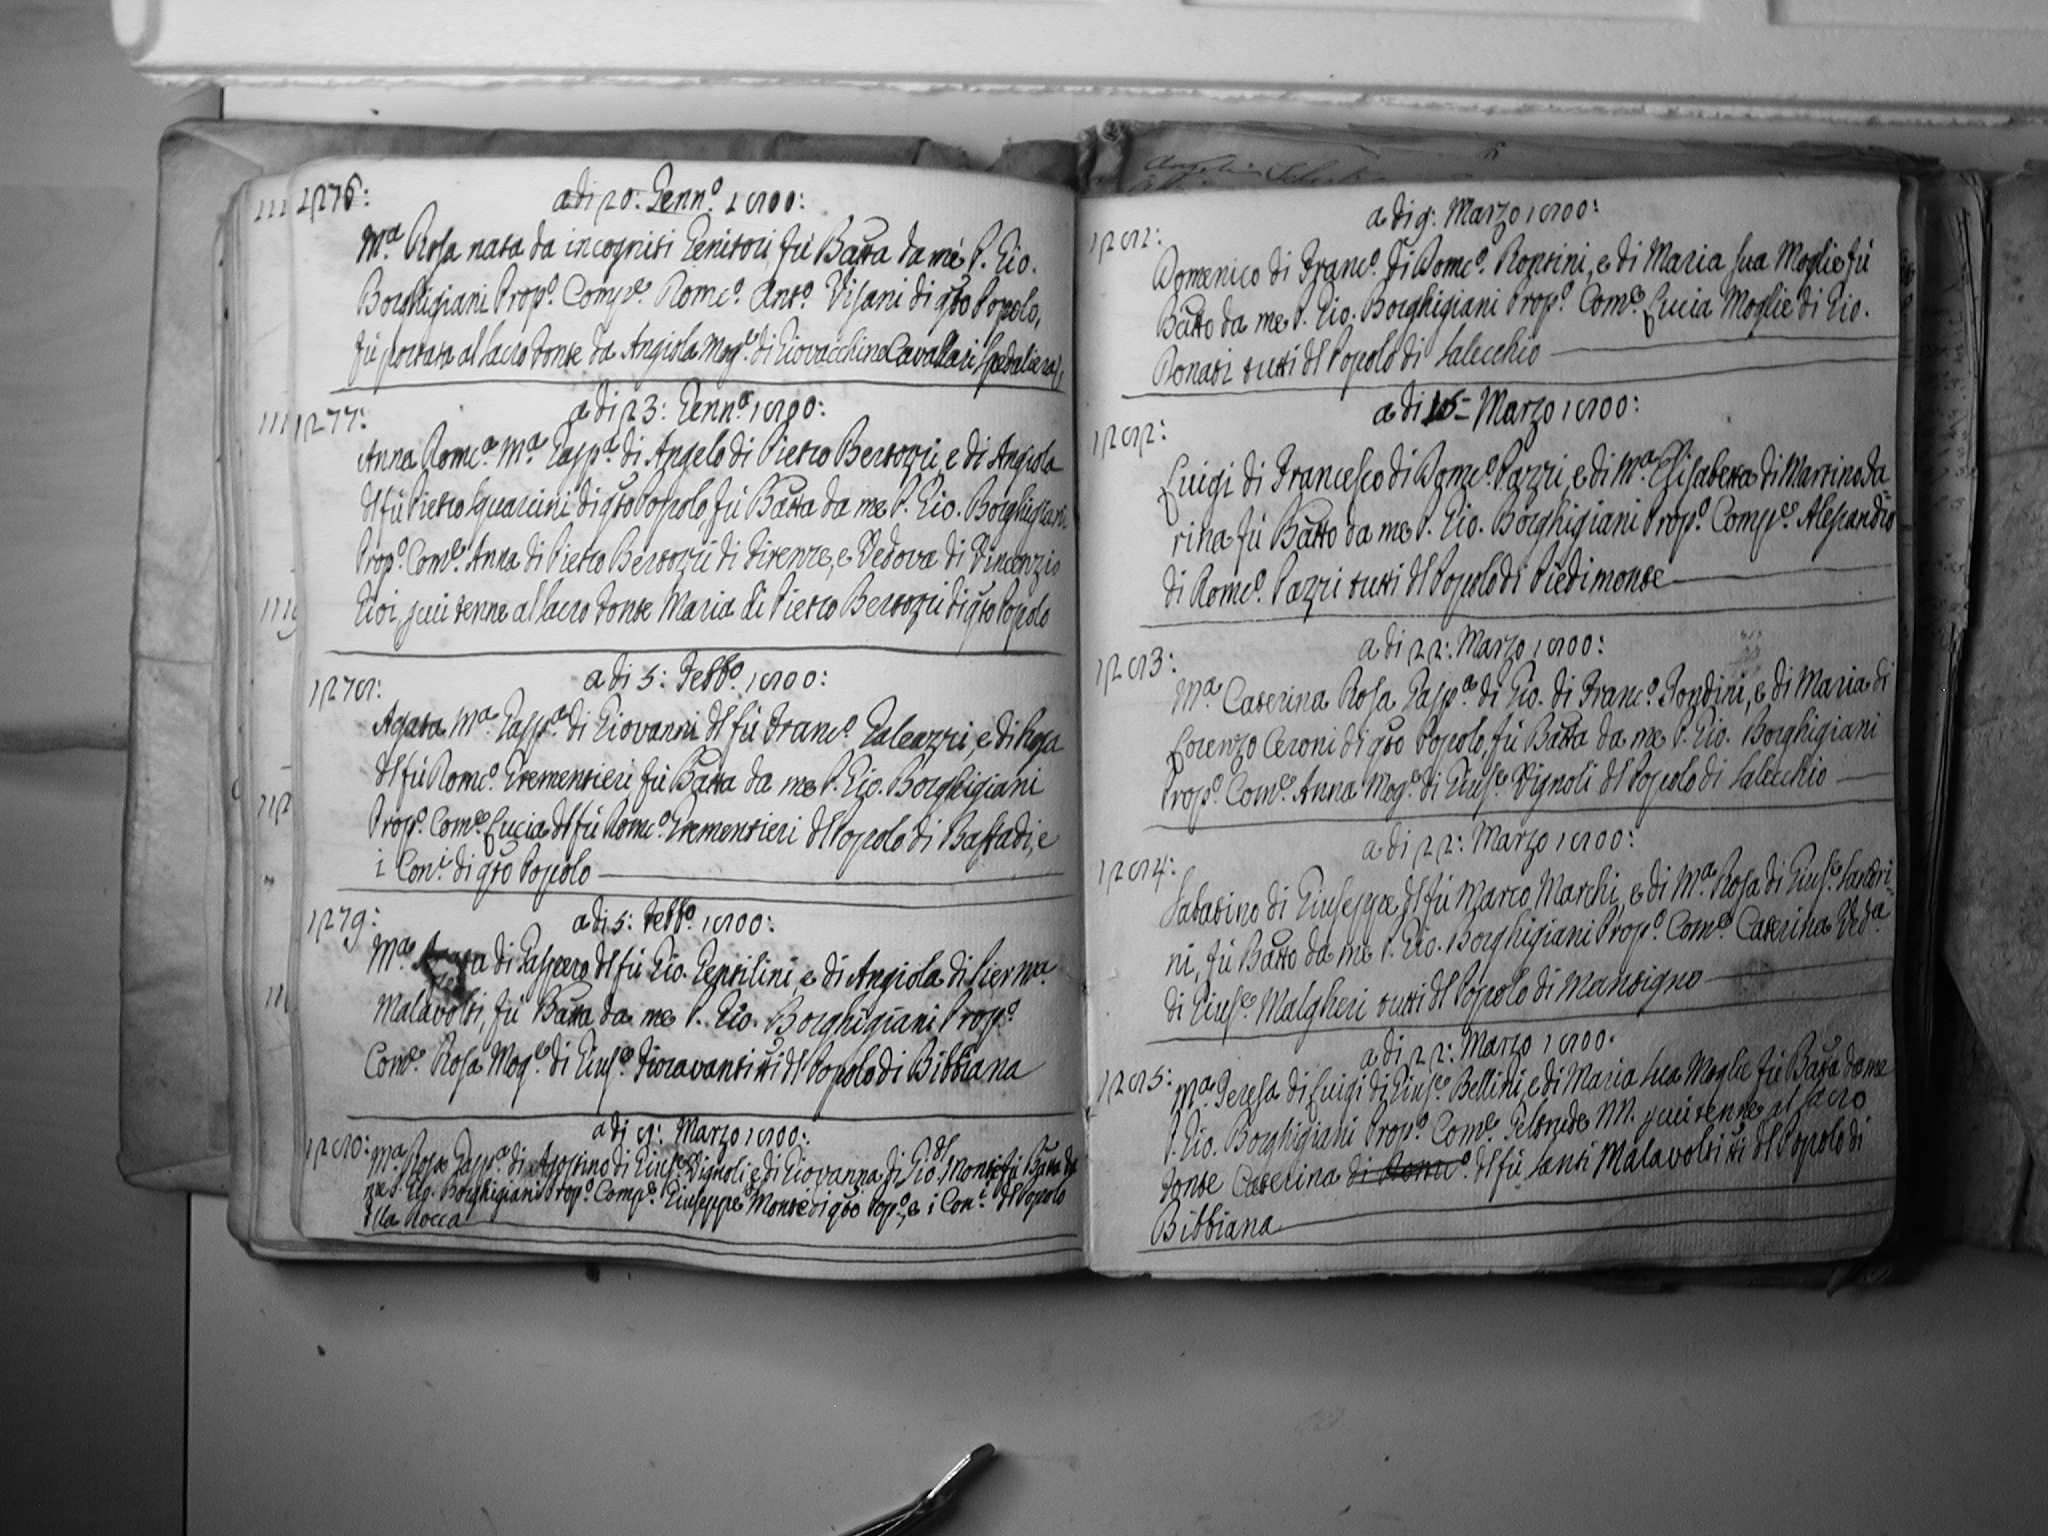 1276:
a di 20: Genn.º 1800:
M.ª Rosa nata da incogniti Genitori, fù Batta da me P. Gio.
Borghigiani Prop.º Comp.e Dom.co Ant.º Visani di qto Popolo,
fù portata al sacro Fonte da Angiola Mog.e di Giovacchino Cavallari Spedaliera
1277:
a di 23: Genn.º 1800:
Anna Dom.ca M.ª Gasp.ª di Angelo di Pietro Bertozzi, e di Angiola
dl fù Pietro Squarcini di qto Popolo fù Batta da me P. Gio. Borghigiani
Prop.º Com.e Anna di Pietro Bertozzi di Firenze, e Vedova di Vincenzio
Gioi, p cui tenne al sacro Fonte Maria di Pietro Bertozzi di qto Popolo
1278:
a di 5: Febb.º 1800:
Agata M.ª Gasp.ª di Giovanni dl fù Franc.º Galeazzi, e di Rosa
dl fù Dom.co Grementieri fù Batta da me P. Gio. Borghigiani
Prop.º Com.e Lucia dl fù Dom.co Grementieri dl Popolo di Baffadi, e
i Con.i di qto Popolo
1279:
a di 5: Febb.º 1800:
M.ª Agata di Gaspero dl fù Gio. Gentilini, e di Angiola di Pier M.ª
Malavolti, fù Batta da me P. Gio. Borghigiani Prop.º
Com.e Rosa Mog.e di Gius.e Fioravanti tti dl Popolo di Bibbiana
1280:
a di 8: Marzo 1800:
M.ª Rosa Gasp.ª di Agostino di Gius.e Vignoli, e di Giovanna di Gio. dl Monte fù Batta da
me P. Gio. Borghigiani Prop.º Comp.e Giuseppe Monte di qto Pop.º, e i Con.i dl Popolo
dlla Rocca
1281:
a di 9: Marzo 1800:
Domenico di Franc.º di Dom.co Rontini, e di Maria sua Moglie fù
Batto da me P. Gio. Borghigiani Prop.º Com.e Lucia Moglie di Gio.
Donati tutti dl Popolo di Salecchio
1282:
a di 15 Marzo 1800:
Luigi di Francesco di Dom.co Pazzi, e di M.ª Elisabetta di Martino Fa
rina fù Batto da me P. Gio. Borghigiani Prop.º Comp.e Alessandro
di Dom.co Pazzi tutti dl Popolo di Piedimonte
1283:
a di 22: Marzo 1800:
M.ª Caterina Rosa Gasp.ª di Gio. di Franc.º Tondini, e di Maria di
Lorenzo Ceroni di qto Popolo, fù Batta da me P. Gio. Borghigiani
Prop.º Com.e Anna Mog.e di Gius.e Vignoli dl Popolo di Salecchio
1284:
a di 22: Marzo 1800:
Sabatino di Giuseppe dl fù Marco Marchi, e di M.ª Rosa di Gius.e Sandri=
ni, fù Batto da me P. Gio. Borghigiani Prop.º Com.e Caterina Ved.ª
di Gius.e Malgheri tutti dl Popolo di Mantigno
1285:
a di 22: Marzo 1800.
M.ª Teresa di Luigi di Gius.e Bellini, e di Maria sua Moglie fù Batta da me
P. Gio. Borghigiani Prop.º Com.e Geltrude NN. p cui tenne al sacro
Fonte Caterina di Dom.co dl fù Santi Malavolti tti dl Popolo di
Bibbiana